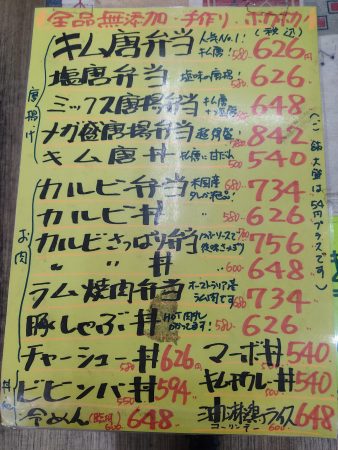 全品無添加・手作り・ホカホカ
(税込)
唐揚げ
キム唐弁当 人気No.1! キム唐! 580 626円
塩唐弁当 塩味の唐揚! 580 626
ミックス唐揚弁当 キム唐+塩唐 600 648
メガ盛唐揚弁当 超特盛! 780 842
キム唐丼 キム唐に甘だれ 500 540
(ご飯大盛は50円プラスです)
お肉
カルビ弁当 米国産 タレが絶品! 680 734
カルビ丼 580 626
カルビさっぱり弁当 後味さっぱり 700 756
〃 〃 丼 600 648
ラム焼肉弁当 オーストラリア産 ラム肉です! 680 734
豚しゃぶ丼 HOT 580 626
丼他
チャーシュー丼 626円 580
マーボ丼 540 500
ビビンバ丼 594 550
キムチカルビ丼 540 500
冷めん 648 600
油淋鶏ライス 648 ユーリンチー 600